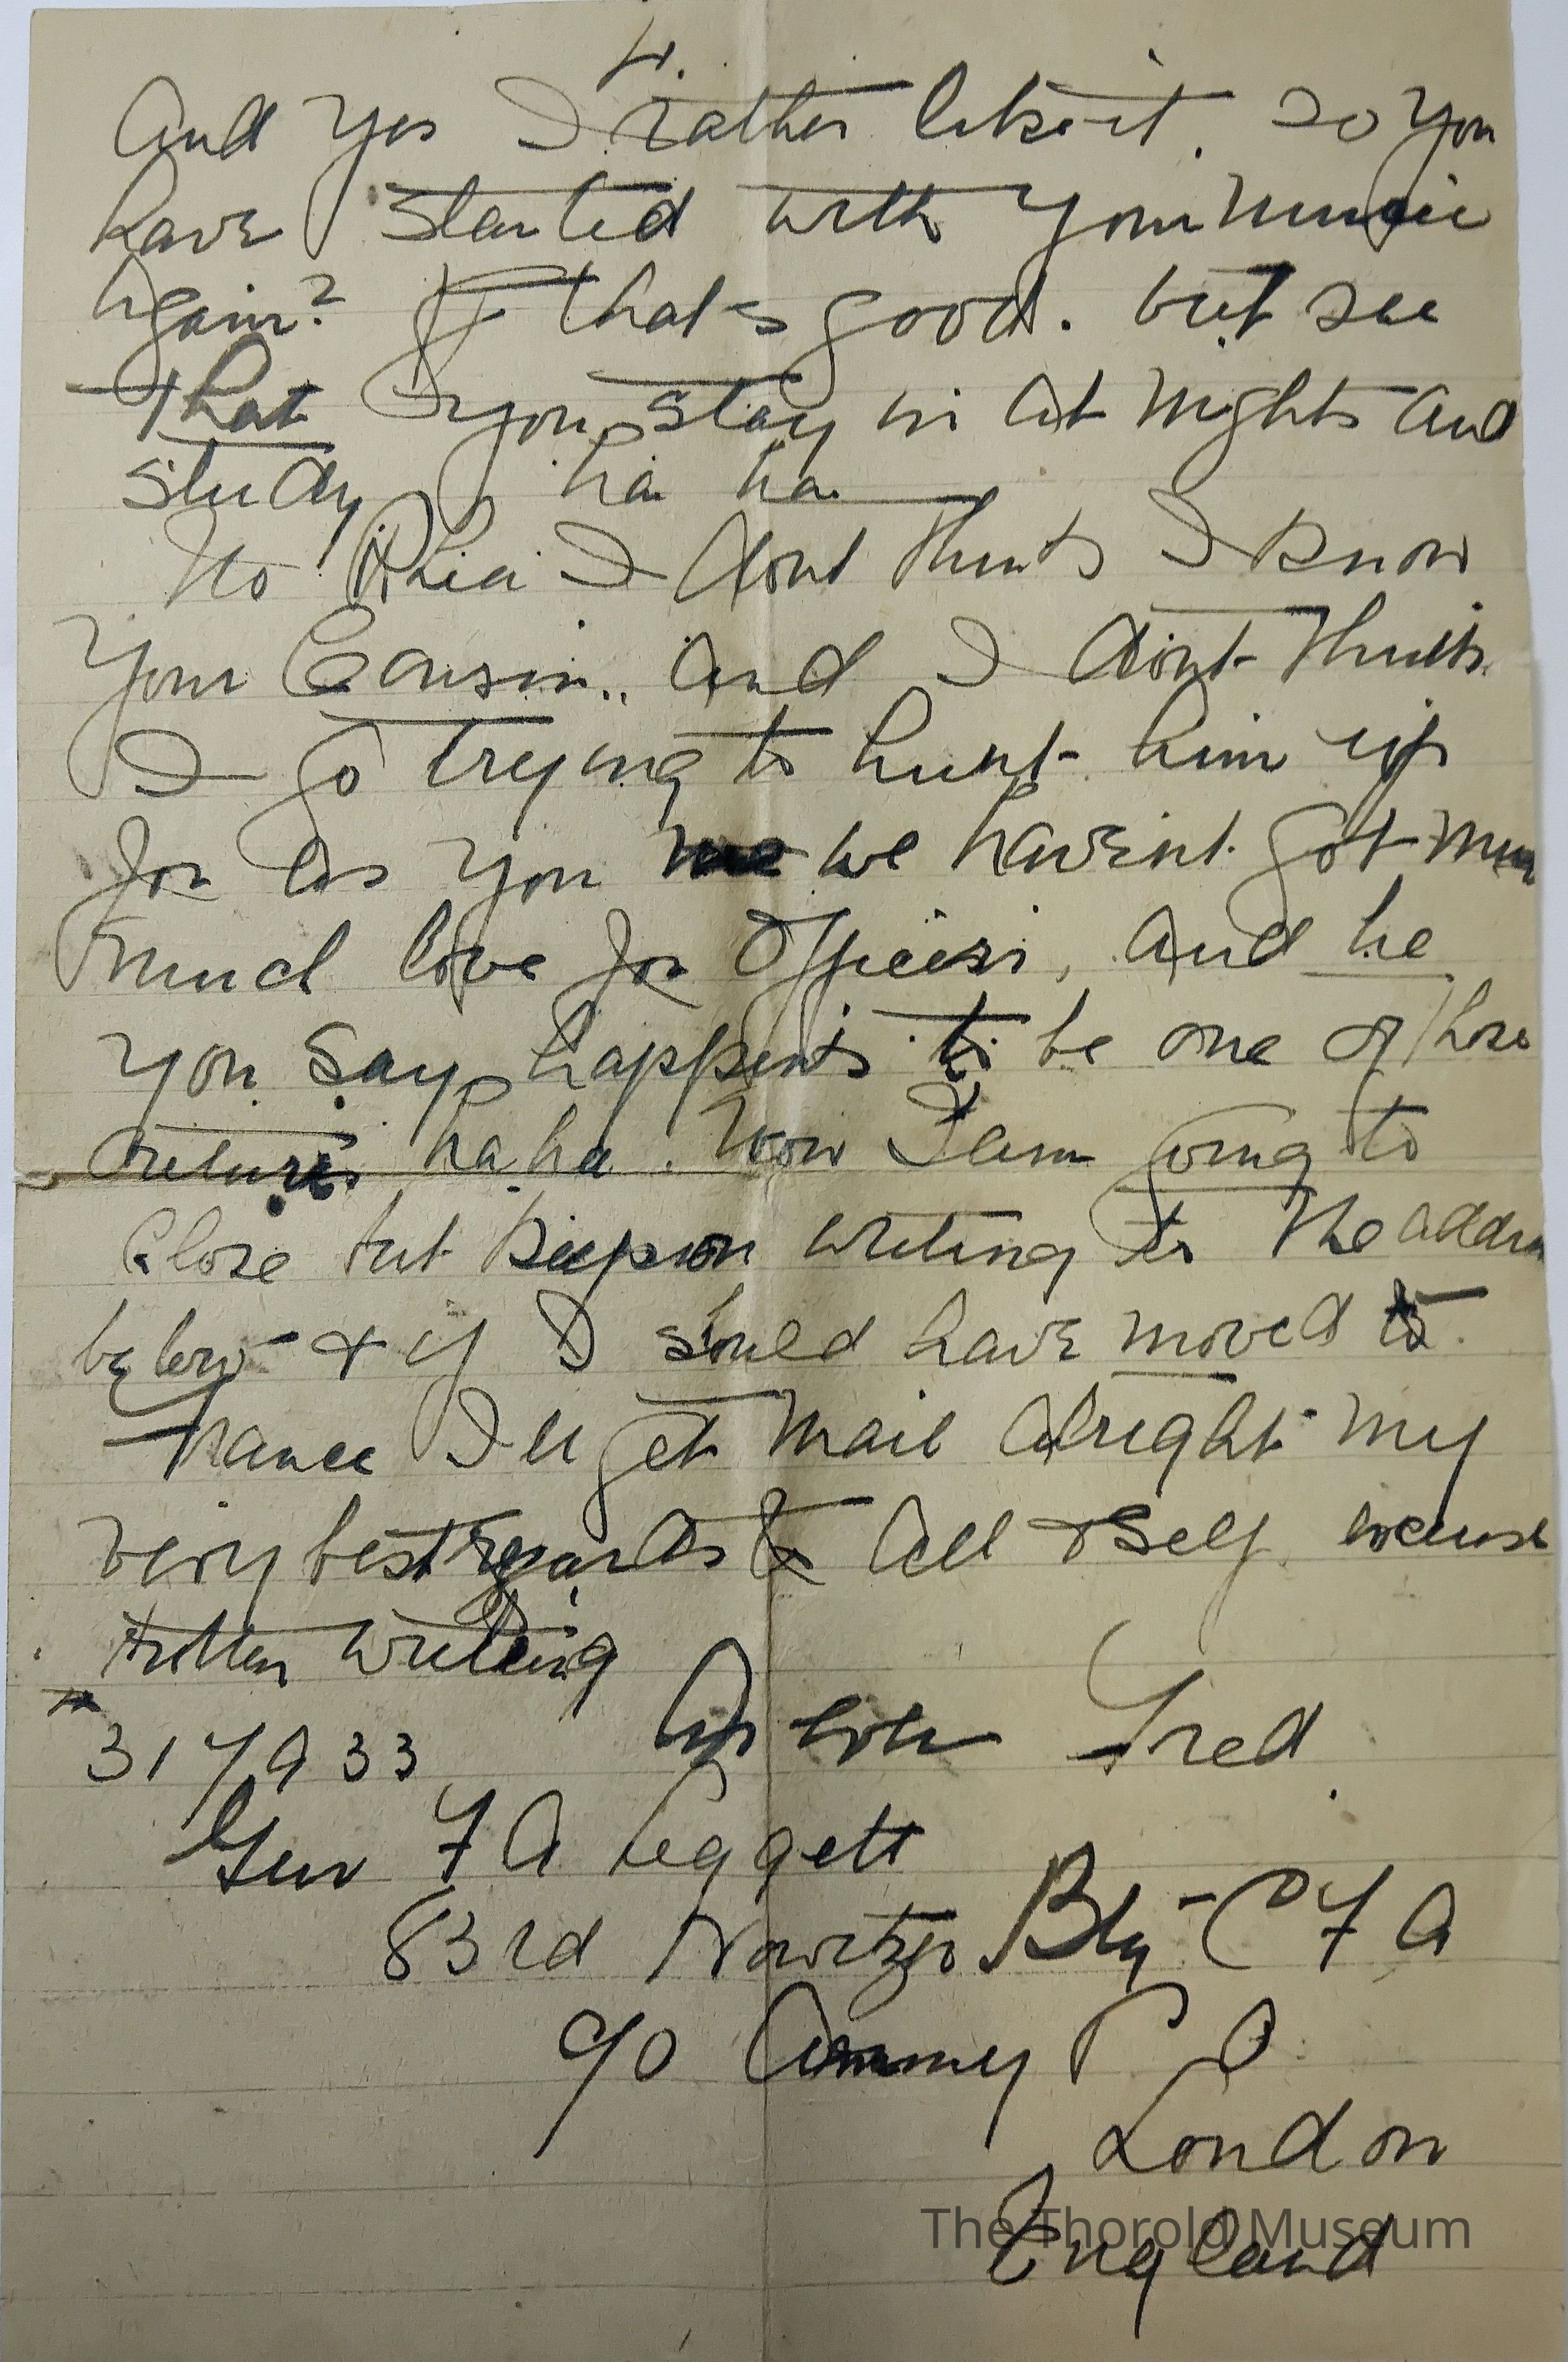 4.
And yes I rather like it. So you
have started with your music
again? that's good. but see
that you stay in at nights and
study ha ha
No Rhia I dont think I know
your Cousin.. and I dont think
I go trying to hunt him up
for as you we havent got
much love for Officers, and he
you say happens to be one of those
ha ha. Now I am going to
close but keep on writing to the address
below & if I should have moved to
France I ll get mail alright my
very best regards to all & self. excuse
rotten writing
317933 As ever Fred.
Gnr F A Leggett
83rd Howitzer Bty - C F A
c/o Army P O
London
England
The Thorold Museum